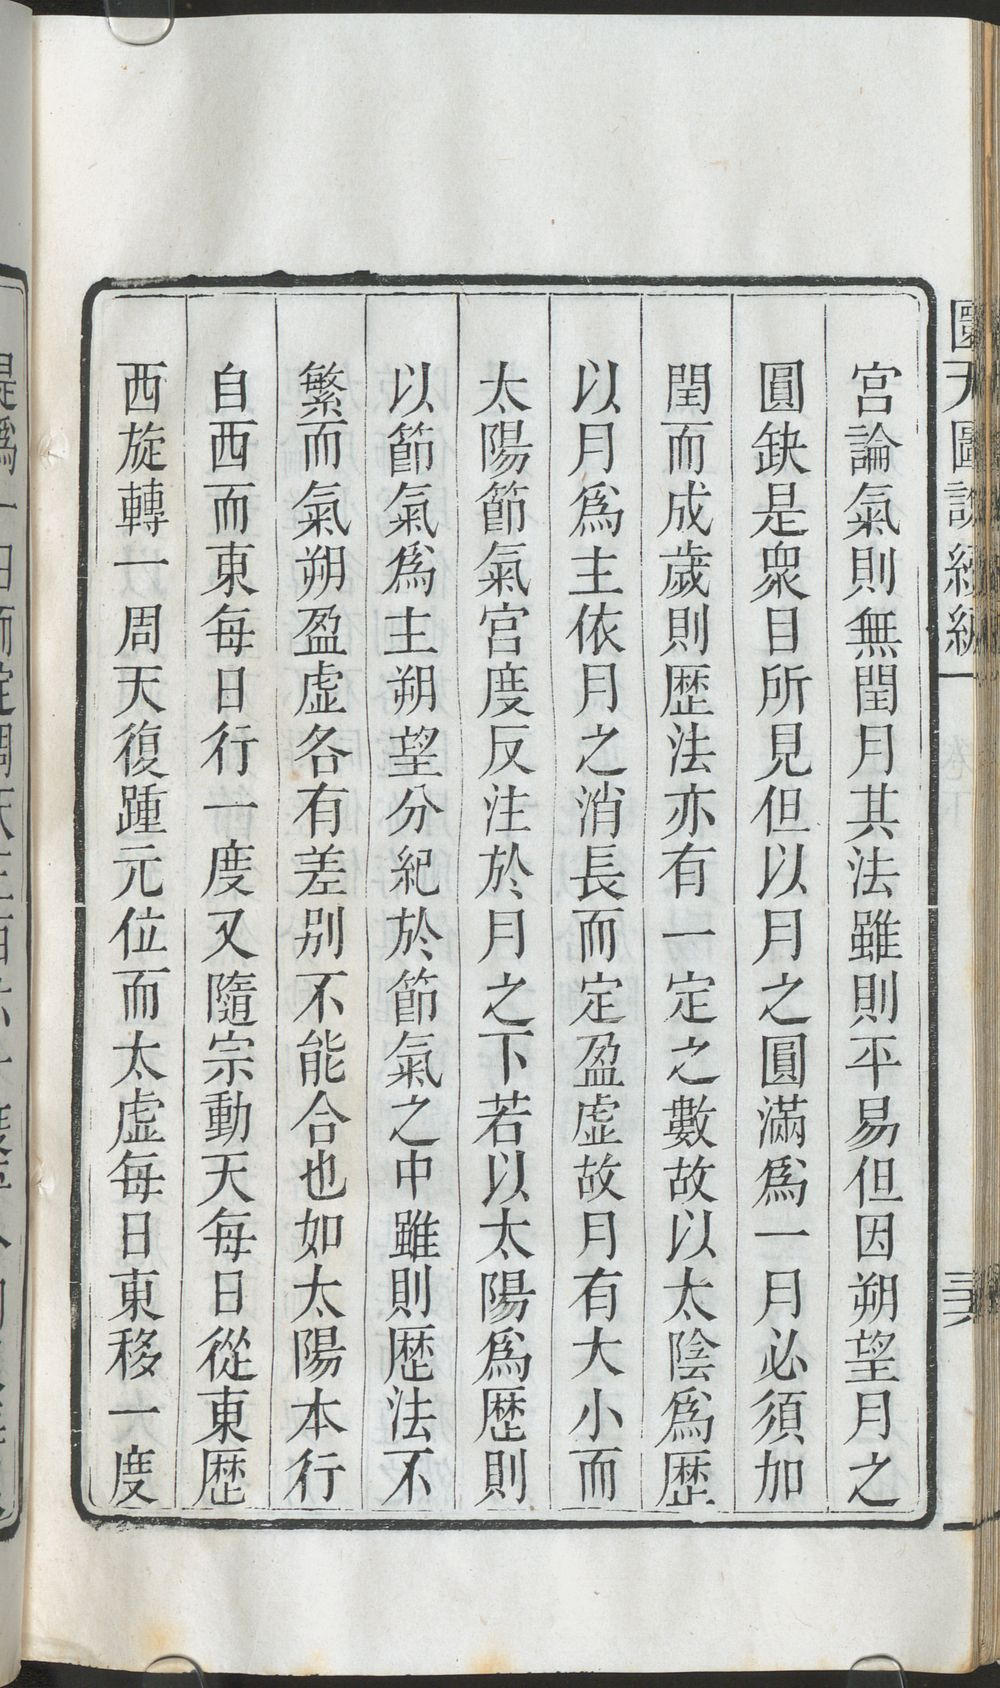 宮論氣則無閏月其法雖則平易但因朔望月之
圓缺是衆目所見但以月之圓滿爲一月必須加
閏而成歲則歴法亦有一定之數故以太陰爲歴
以月爲主依月之消長而定盈虛故月有大小而
太陽節氣宮度反注於月之下若以太陽爲歴則
以節氣爲主朔望分紀於節氣之中雖則歴法不
繁而氣朔盈虛各有差別不能合也如太陽本行
自西而東每日行一度又隨宗動天每日從東歴
西旋轉一周天復踵元位而太虛每日東移一度